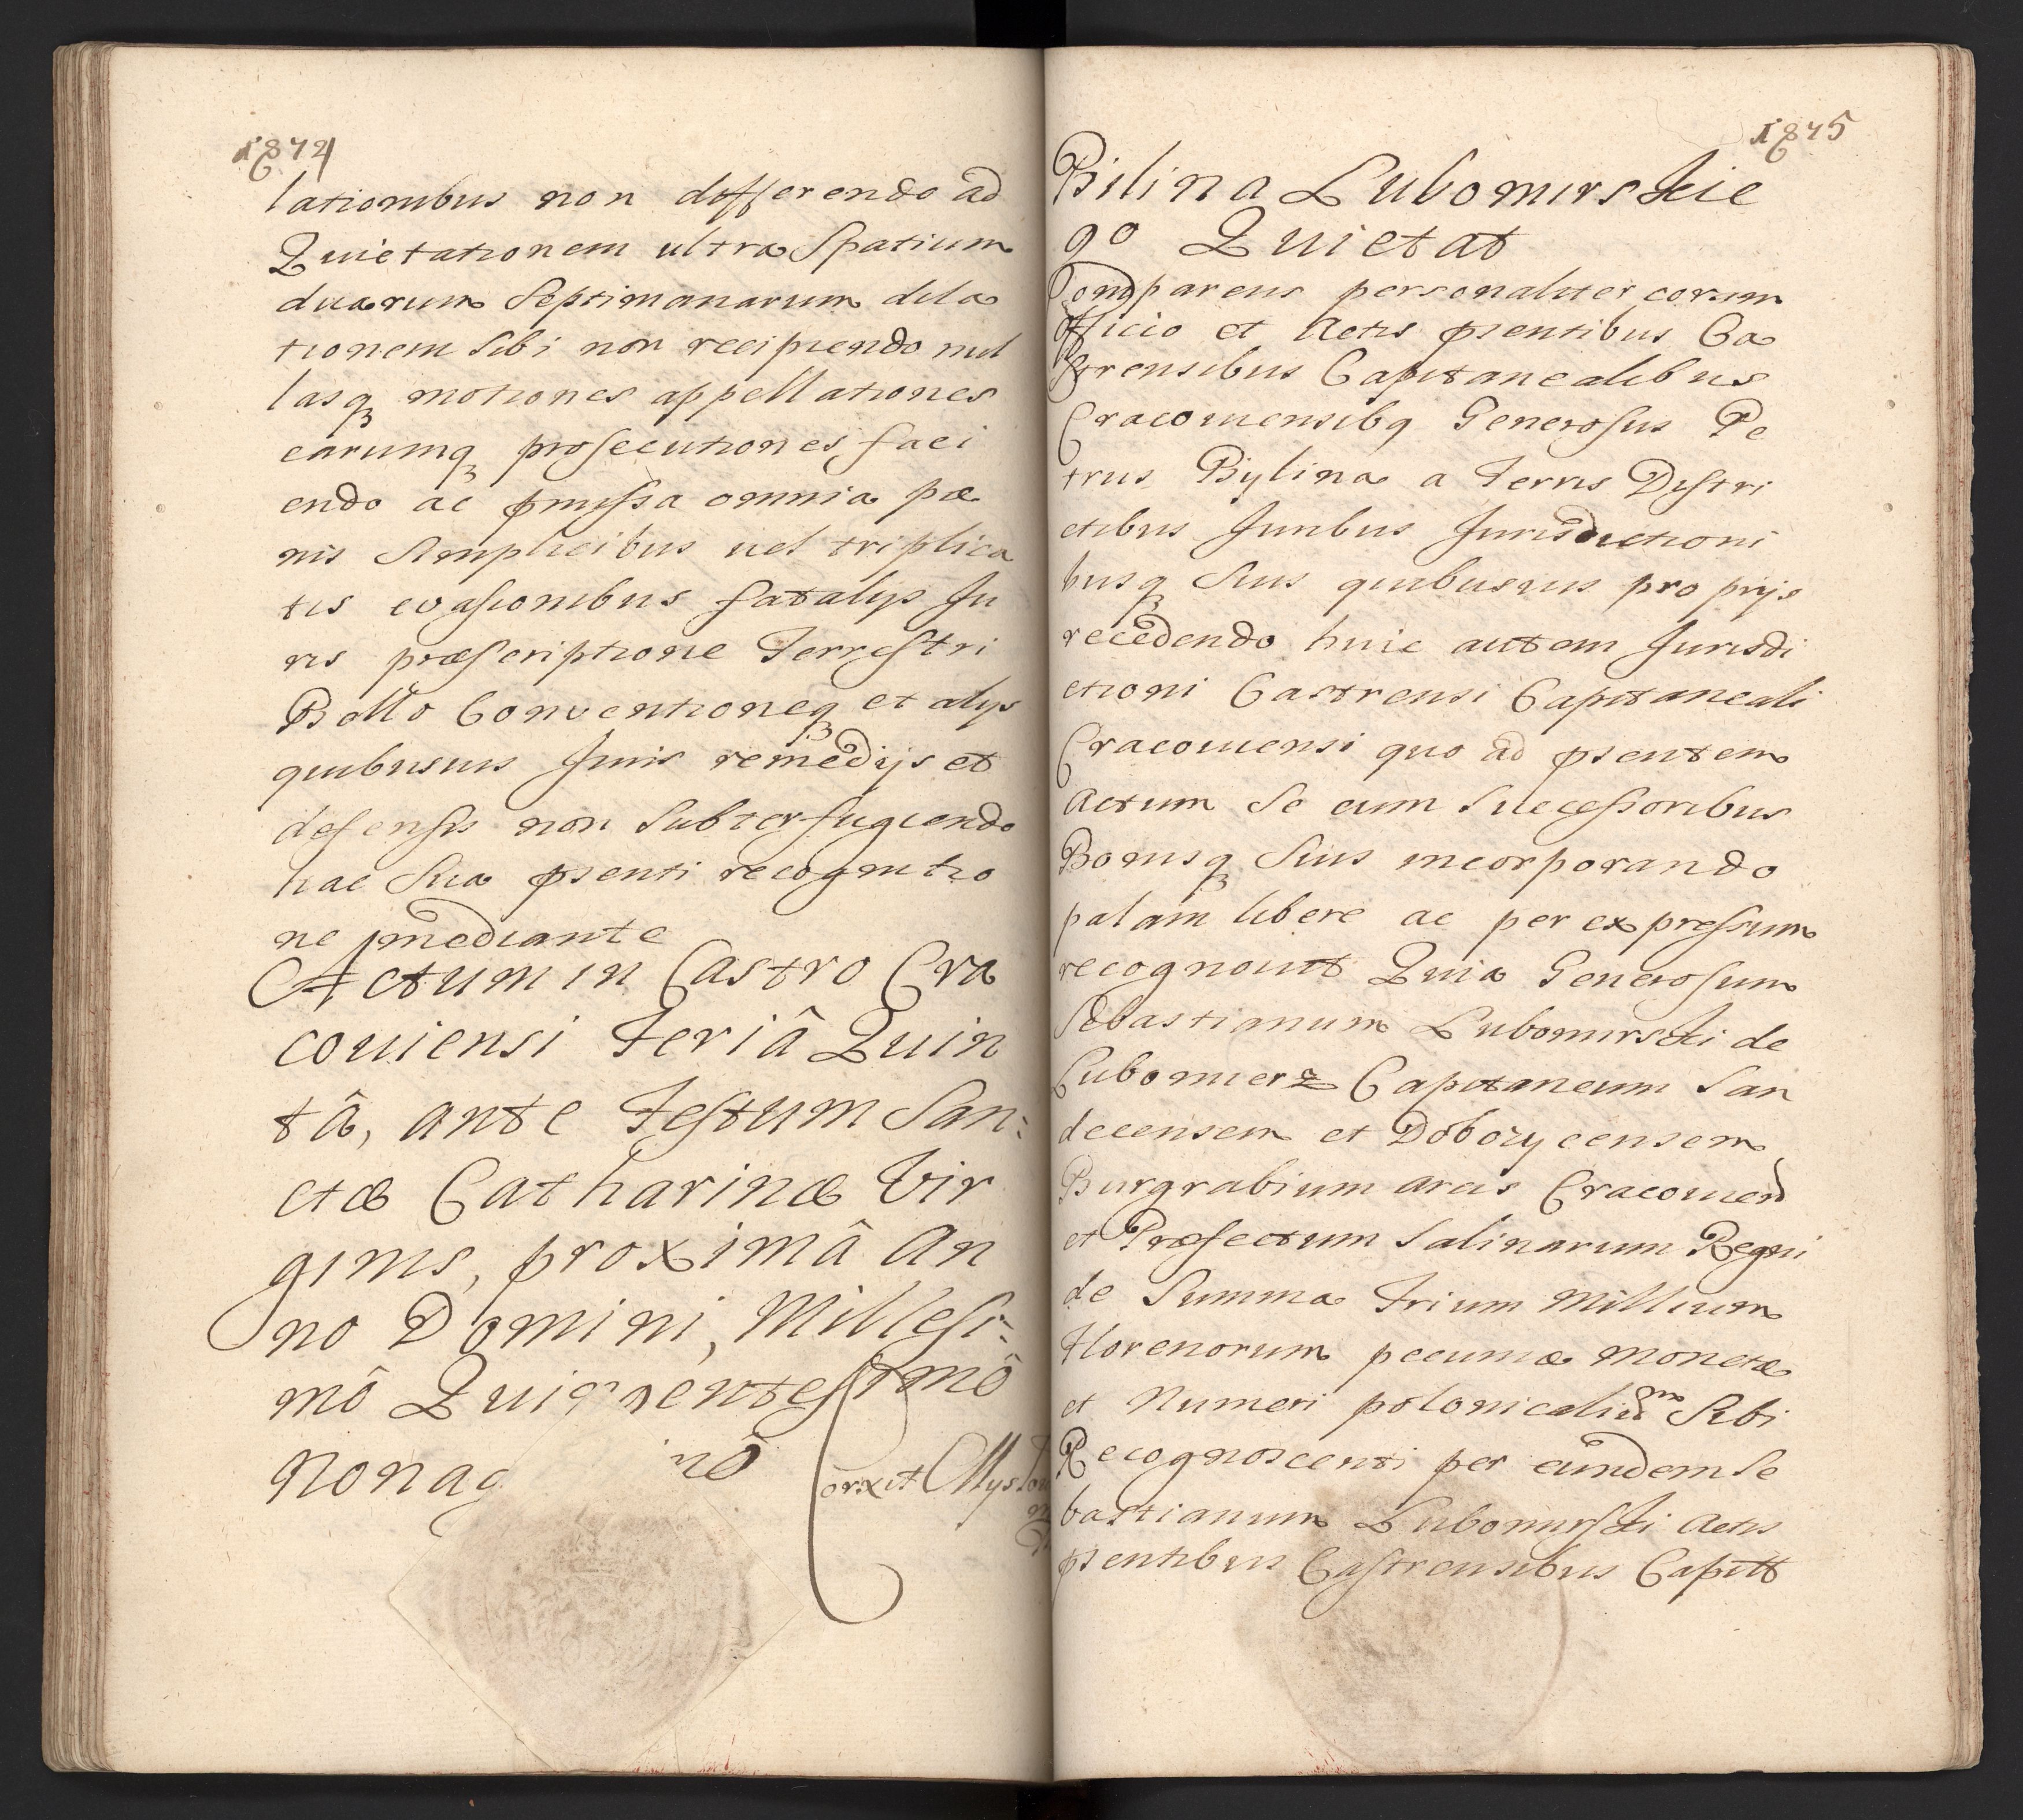 1874
lationibus non differendo ad
Quietationem ultra Spatium
duarum Septimanarum dila
tionem Sibi non recipiendo nul
lasq3 motiones appellationes
earumq3 prosecutiones faci
endo ac pmissa omnia pœ
nis Simplicibus vel triplica
tis evasionibus fatalijs Ju
ris præscriptione Terrestri
Bello Conventioneq3 et alijs
quibusuis Juris remedijs et
defensis non Subterfugiendo
hac Sua psenti recognitio
ne mediante
Actum in Castro Cra
couiensi Feriâ Quin
tâ, ante Festum San:
ctæ Catharinæ Vir
ginis, proximâ An
no Domini, Millesi:
mô Quingentesimô
nonag nô
orxit Mys
1875
Bilina Lubomirskie
go Quietat
Comparens personaliter coram
Officio et Actis psentibus Ca
strensibus Capitanealibus
Cracouiensibq Generosus Pe
trus Bylina a Terris Distri
ctibus Juribus Jurisdictioni
busq3 Suis quibusuis proprijs
recedendo huic autem Jurisdi
ctioni Castrensi Capitaneali
Cracouiensi quo ad psentem
Actum Se cum Successoribus
Bonisq3 Suis incorporando
palam libere ac per expressum
recognouit Quia Generosum
Sebastianum Lubomirski de
Lubomierz Capitaneum San
decensem et Dobczycensem
Burgrabium arcis Cracouien
et Præfectum Salinarum Regni
de Summa Trium Millium
Florenorum pecuniæ Monetæ
et Numeri polonicaliu Sibi
Recognoscenti per eundem Se
bastianum Lubomirski Actis
psentibus Castrensibus Capitt